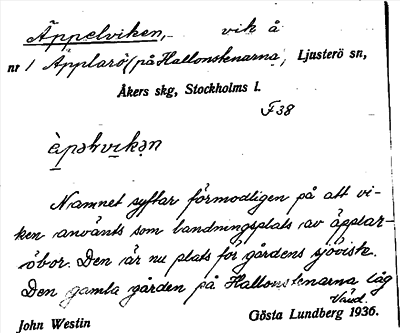 Äppelviken, vik å
nr 1 Äpplarö (på Hallonstenarna, Ljusterö sn,
Åkers skg, Stockholms l.
F38
Namnet syftar förmodligen på att vi-
ken använts som landningsplats av äpplar-
öbor. Den är nu plats för gårdens sjövisk.
Den gamla gården på Hallonstenarna låg
John Westin Gösta Lundberg 1936.